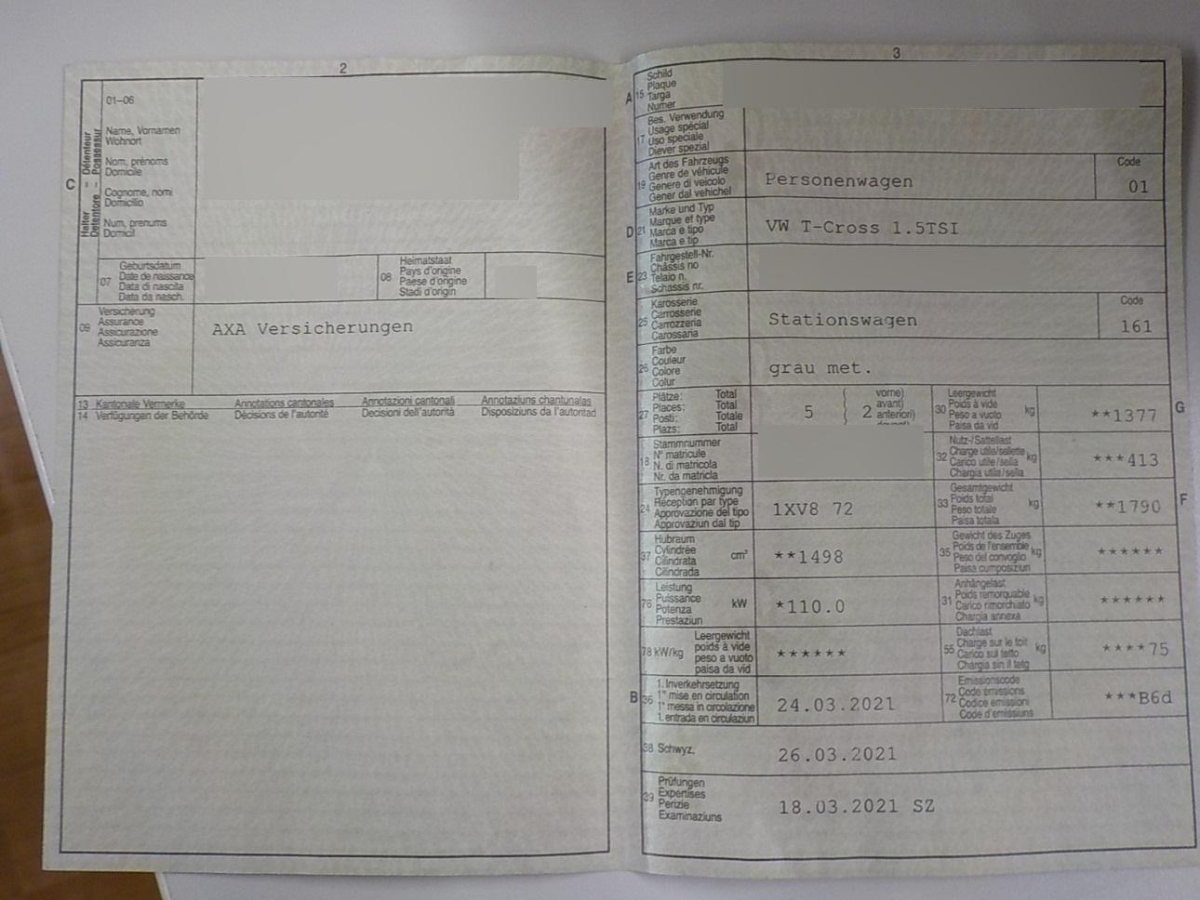 2
01–06
Halter – Détenteur
Detentore – Possessur
C
Name, Vornamen
Wohnort
Nom, prénoms
Domicile
Cognome, nomi
Domicilio
Num, prenums
Domicil
07
Geburtsdatum
Date de naissance
Data di nascita
Data da nasch.
08
Heimatstaat
Pays d'origine
Paese d'origine
Stadi d'origin
09
Versicherung
Assurance
Assicurazione
Assicuranza
AXA Versicherungen
13 Kantonale Vermerke Annotations cantonales Annotazioni cantonali Annotaziuns chantunalas
14 Verfügungen der Behörde Décisions de l'autorité Decisioni dell'autorità Disposiziuns da l'autoritad
3
A 15
Schild
Plaque
Targa
Numer
17
Bes. Verwendung
Usage spécial
Uso speciale
Diever spezial
19
Art des Fahrzeugs
Genre de véhicule
Genere di veicolo
Gener dal vehichel
Personenwagen
Code
01
D 21
Marke und Typ
Marque et type
Marca e tipo
Marca e tip
VW T-Cross 1.5TSI
E 23
Fahrgestell-Nr.
Châssis no
Telaio n.
Schassis nr.
25
Karosserie
Carrosserie
Carrozzeria
Carossaria
Stationswagen
Code
161
26
Farbe
Couleur
Colore
Colur
grau met.
27
Plätze: Total
Places: Total
Posti: Totale
Plazs: Total
5
2
vorne)
avant)
anteriori)
30
Leergewicht
Poids à vide
Peso a vuoto
Paisa da vid
kg
**1377
G
18
Stammnummer
N° matricule
N. di matricola
Nr. da matricla
32
Nutz-/Sattellast
Charge utile/sellette
Carico utile/sella
Chargia utila/sella
kg
***413
24
Typengenehmigung
Réception par type
Approvazione del tipo
Approvaziun dal tip
1XV8 72
33
Gesamtgewicht
Poids total
Peso totale
Paisa totala
kg
**1790
F
37
Hubraum
Cylindrée
Cilindrata
Cilindrada
cm³
**1498
35
Gewicht des Zuges
Poids de l'ensemble
Peso del convoglio
Paisa cumposiziun
kg
******
76
Leistung
Puissance
Potenza
Prestaziun
kW
*110.0
31
Anhängelast
Poids remorquable
Carico rimorchiato
Chargia annexa
kg
******
78 kW/kg
Leergewicht
poids à vide
peso a vuoto
paisa da vid
******
55
Dachlast
Charge sur le toit
Carico sul tetto
Chargia sin il tetg
kg
****75
B 36
1. Inverkehrsetzung
1re mise en circulation
1a messa in circolazione
1. entrada en circulaziun
24.03.2021
72
Emissionscode
Code émissions
Codice emissioni
Code d'emissiuns
***B6d
38 Schwyz,
26.03.2021
39
Prüfungen
Expertises
Perizie
Examinaziuns
18.03.2021 SZ